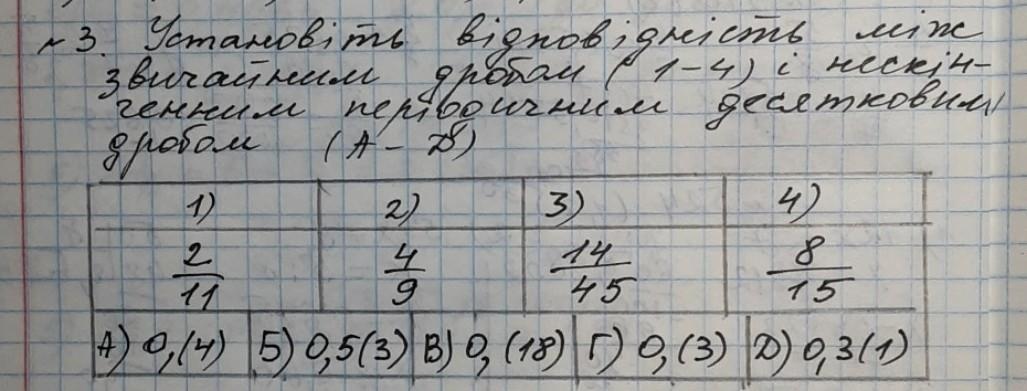 №3. Установіть відповідність між
звичайним дробом (1-4) і нескін-
ченним періодичним десятковим
дробом (А - Д)
1) 2) 3) 4)
2/11 4/9 14/45 8/15
А) 0,(4) Б) 0,5(3) В) 0,(18) Г) 0,(3) Д) 0,3(1)